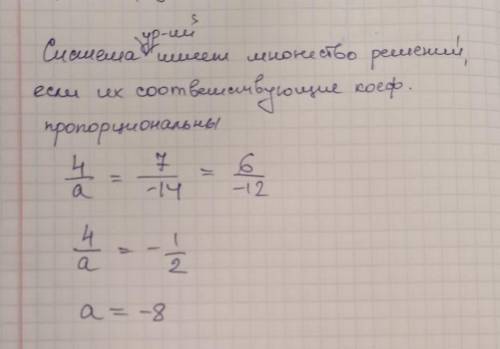 Система ур-ий имеет множество решений,
если их соответствующие коеф.
пропорциональны
4/a = 7/-14 = 6/-12
4/a = -1/2
a = -8